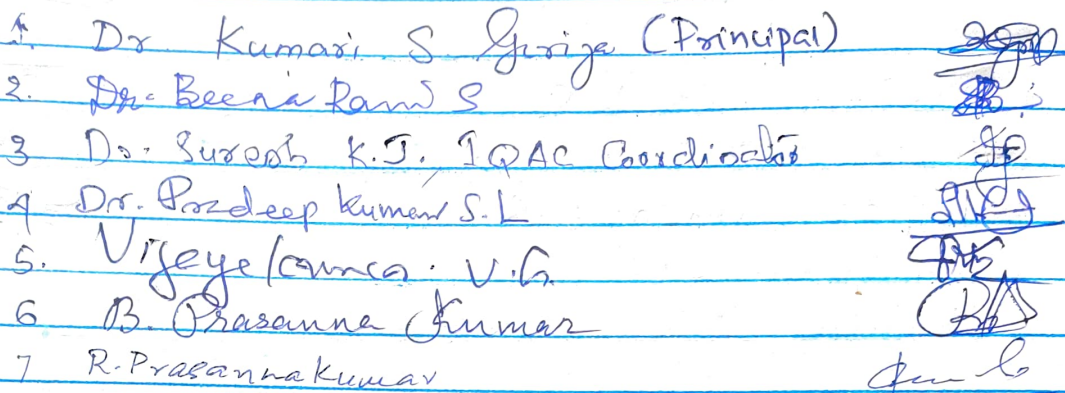 1. Dr Kumari S Girija (Principal)
2. Dr. Beena Rani S
3 Dr. Suresh K.J. IQAC Coordinator
4 Dr. Pradeep Kumar S.L
5. Vijayakumar. V.G.
6 B. Prasanna Kumar
7 R. Prasannakumar